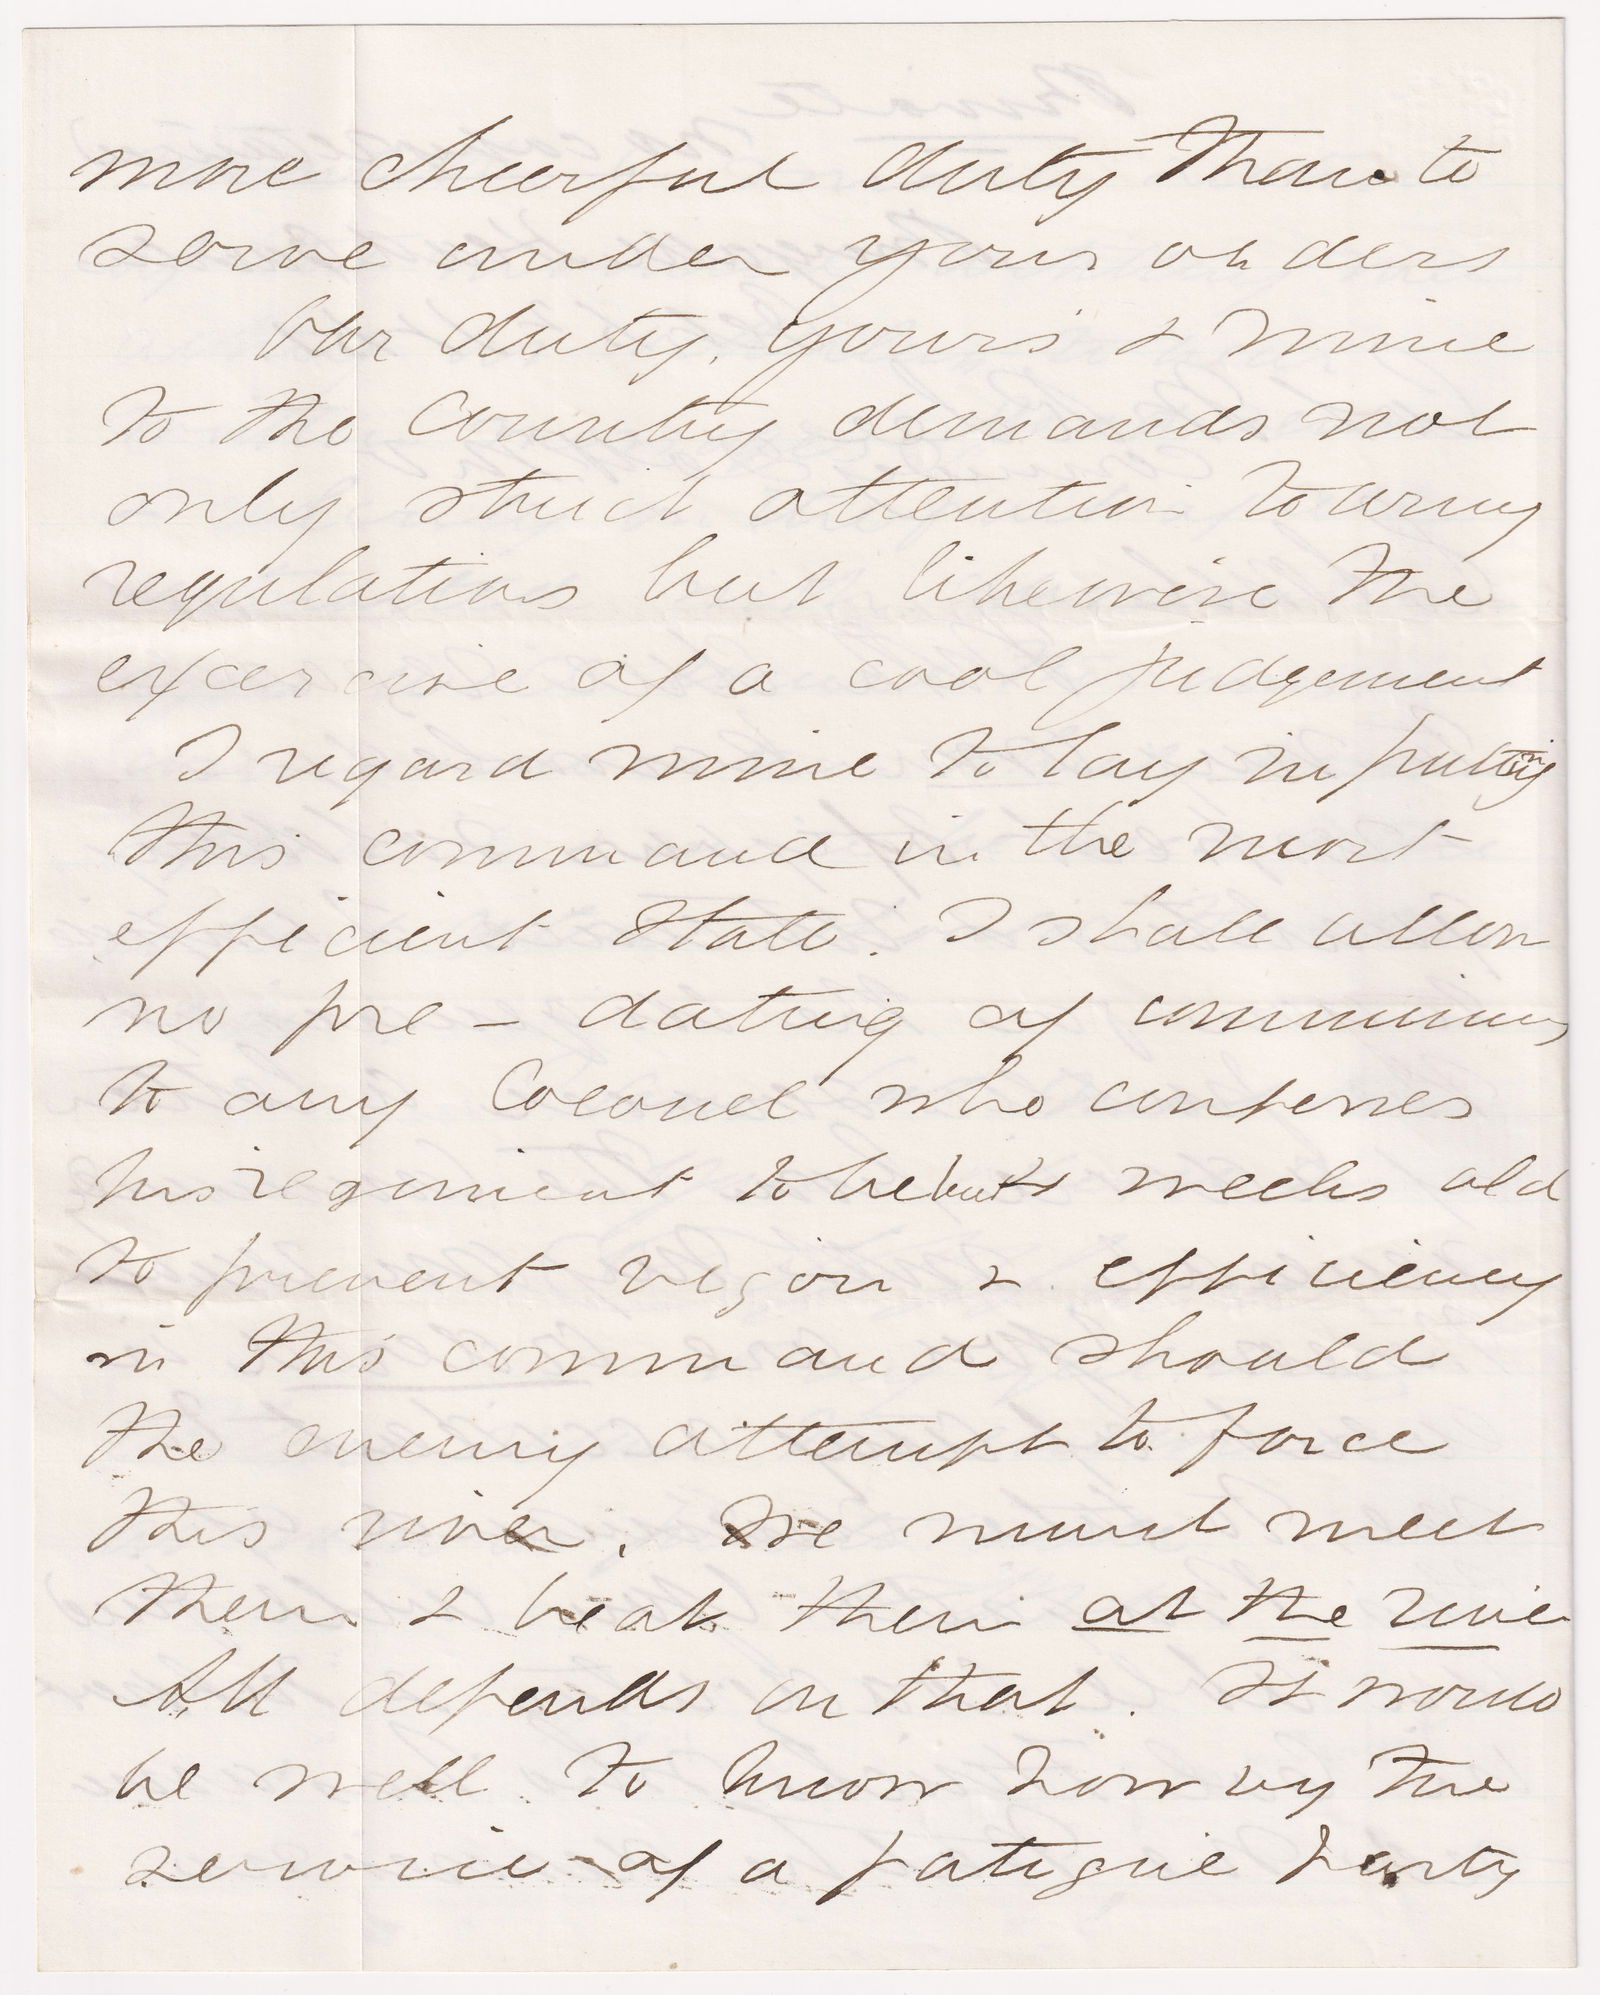 more cheerful duty than to
serve under your orders
Our duty, yours & mine
to the country demands not
only strict attention to army
regulations but likewise the
exercise of a cool judgement
I regard mine to lay in putting
this command in the most
efficient state. I shall allow
no pre-dating of commissions
to any Colonel who confesses
his regiment to be but weeks old
to prevent vigor & efficiency
in this command should
the enemy attempt to force
this river. We must meet
them & beat them at the river
All depends on that. It would
be well to know how by the
service of a fatigue party